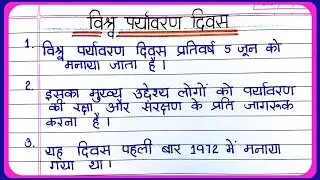 विश्व पर्यावरण दिवस
1. विश्व पर्यावरण दिवस प्रतिवर्ष 5 जून को
मनाया जाता है ।
2. इसका मुख्य उद्देश्य लोगों को पर्यावरण
की रक्षा और संरक्षण के प्रति जागरूक
करना है ।
3. यह दिवस पहली बार 1972 में मनाया
गया था ।